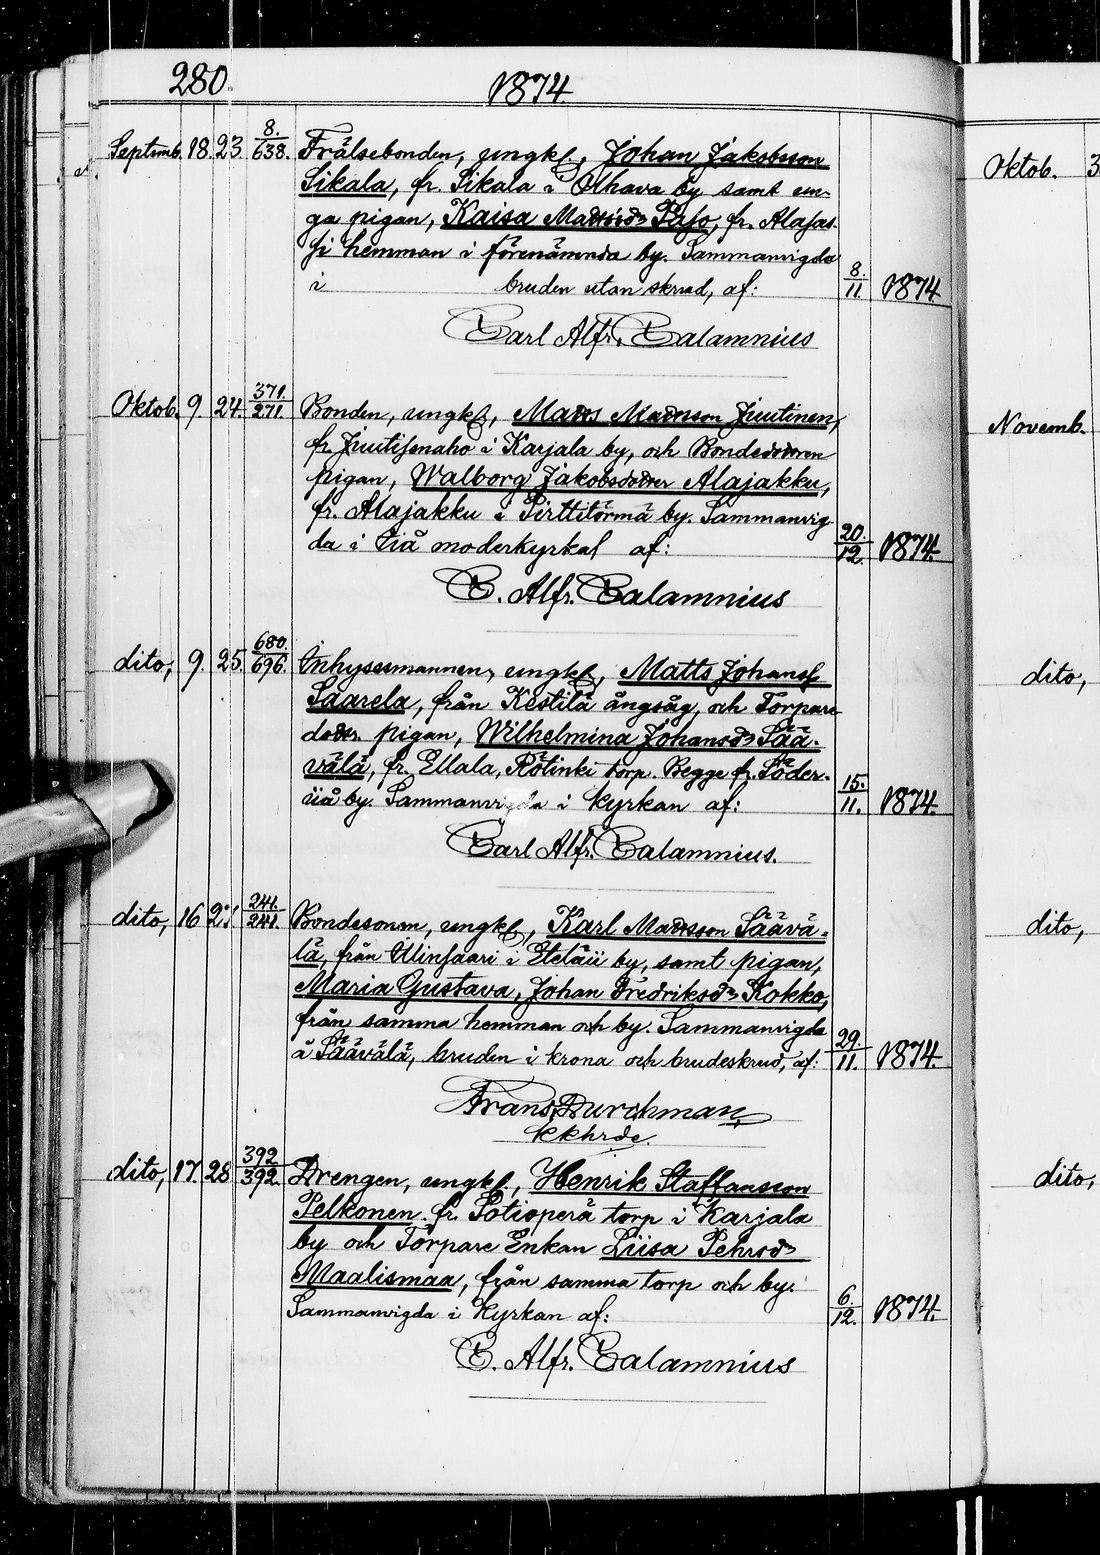 280. 1874.
Septmb. 18. 23. 8./638. Frälsebonden, ungkl, Johan Jakobsson
Sikala, fr. Sikala i Olhava by samt un-
ga pigan, Kaisa Madsd:r Paso, fr. Alasas-
si hemman i förenämnda by. Sammanvigda
i bruden utan skrud, af: 8./11. 1874
Carl Alfr. Calamnius
Oktob. 9. 24. 371./271. Bonden, ungkl, Mads Madsson Juutinen,
fr. Juutisenaho i Karjala by, och Bondedotren
pigan, Walborg Jakobsdotter Alajakku,
fr. Alajakku i Pirttitörmä by. Sammanvig-
da i Iiå moderkyrka af: 20./12. 1874.
C. Alfr. Calamnius
dito, 9. 25. 680./696. Inhysesmannen, ungkl, Matts Johanss
Saarela, från Kestilä ångsåg, och Torpare
dotter pigan, Wilhelmina Johansd:r Sää-
välä, fr. Ellala, Rötinki torp. Begge fr. Söder-
iiå by. Sammanvigda i kyrkan af: 15./11. 1874.
Carl Alfr. Calamnius.
dito, 16 241./241. Bondesonen, ungkl, Karl Madsson Säävä-
lä, från Ulinsaari i Eteläii by, samt pigan,
Maria Gustava, Johan Fredriksd:r Kokko,
från samma hemman och by. Sammanvigda
å Säävälä, bruden i krona och brudeskrud, af: 29./11. 1874.
Frans Durchman
kkhrde.
dito, 17. 28 392/392. Drengen, ungkl., Henrik Staffansson
Pelkonen. fr. Sotioperä torp i Karjala
by och Torpare Enkan Liisa Pehrsd:r
Maalismaa, från samma torp och by.
Sammanvigda i Kyrkan af: 6./12. 1874.
C. Alfr. Calamnius
Oktob. 3
Novemb.
dito,
dito,
dito,